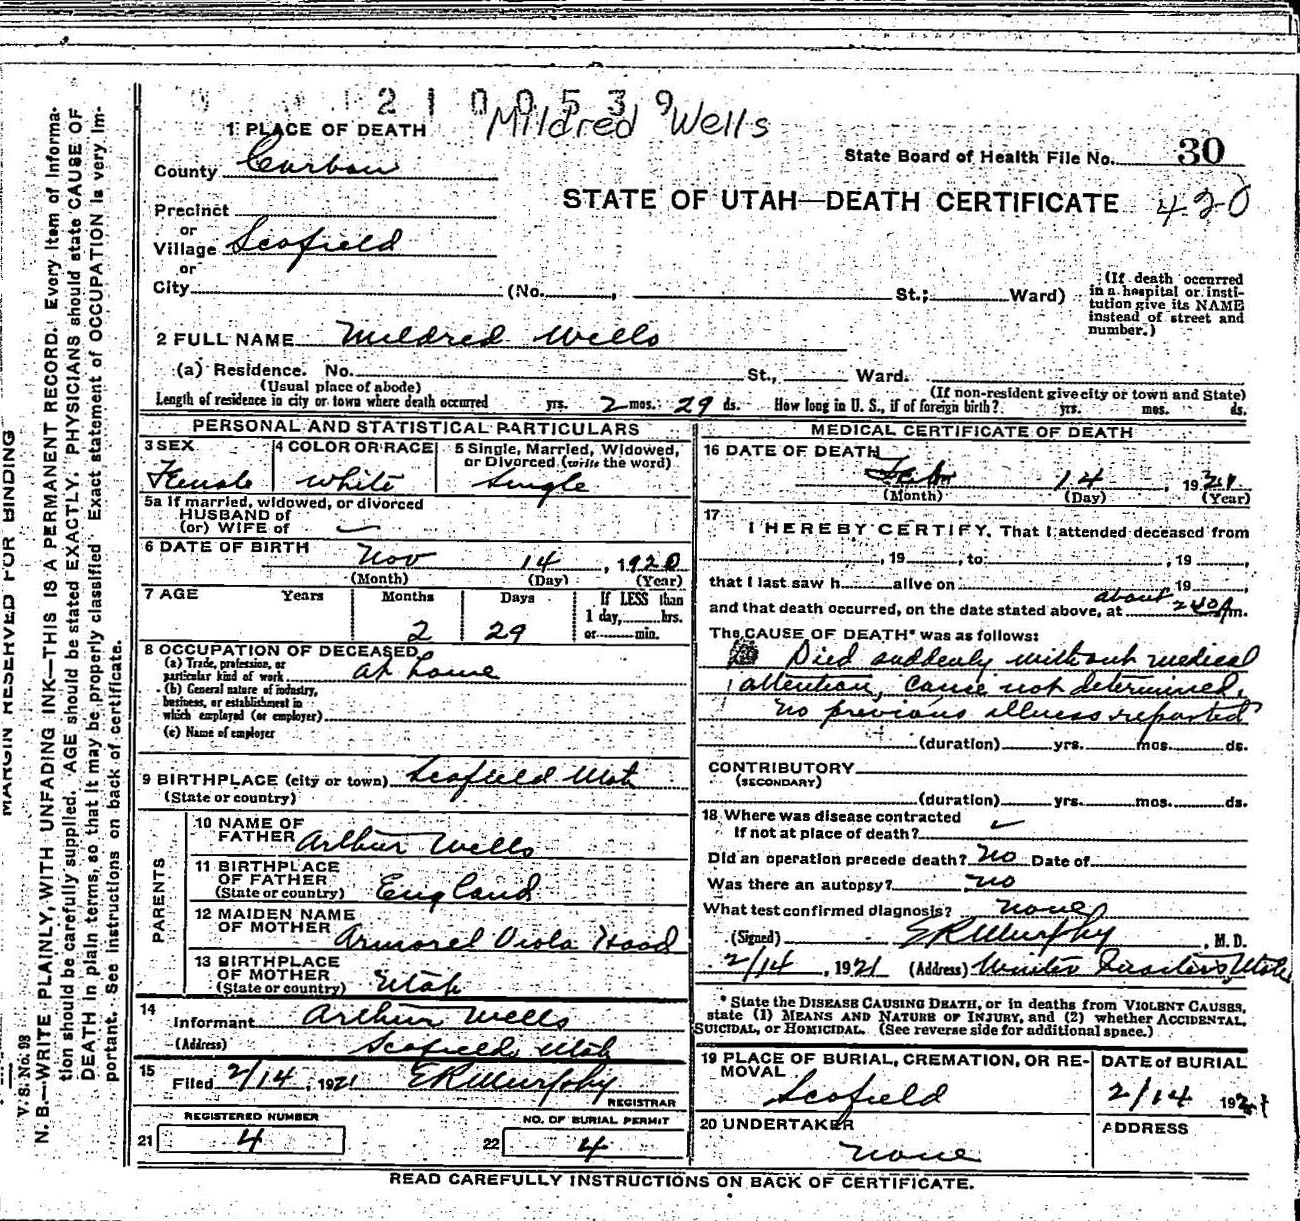 2100539
Mildred Wells
1 PLACE OF DEATH
County Carbon
State Board of Health File No. 30
STATE OF UTAH—DEATH CERTIFICATE 420
Precinct
or
Village Scofield
or
City (No. , St.; Ward)
(If death occurred in a hospital or institution give its NAME instead of street and number.)
2 FULL NAME Mildred Wells
(a) Residence. No. St., Ward.
(Usual place of abode) (If non-resident give city or town and State)
Length of residence in city or town where death occurred yrs. 2 mos. 29 ds. How long in U. S., if of foreign birth? yrs. mos. ds.
PERSONAL AND STATISTICAL PARTICULARS
3 SEX Female
4 COLOR OR RACE white
5 Single, Married, Widowed, or Divorced (write the word) Single
5a If married, widowed, or divorced
HUSBAND of
(or) WIFE of
6 DATE OF BIRTH Nov 14, 1920
(Month) (Day) (Year)
7 AGE Years Months Days If LESS than
1 day, hrs.
or min.
2 29
8 OCCUPATION OF DECEASED
(a) Trade, profession, or particular kind of work at home
(b) General nature of industry, business, or establishment in which employed (or employer)
(c) Name of employer
9 BIRTHPLACE (city or town) Scofield Utah
(State or country)
PARENTS
10 NAME OF FATHER Arthur Wells
11 BIRTHPLACE OF FATHER (State or country) England
12 MAIDEN NAME OF MOTHER Armorel Viola Hood
13 BIRTHPLACE OF MOTHER (State or country) Utah
14
Informant Arthur Wells
(Address) Scofield, Utah
15
Filed 2/14, 1921 E R Murphy
REGISTRAR
REGISTERED NUMBER
21 4
NO. OF BURIAL PERMIT
22 4
MEDICAL CERTIFICATE OF DEATH
16 DATE OF DEATH
Feb 14, 1921
(Month) (Day) (Year)
17
I HEREBY CERTIFY, That I attended deceased from
, 19 , to , 19 ,
that I last saw h alive on 19 ,
about
and that death occurred, on the date stated above, at 2 40 Pm.
The CAUSE OF DEATH* was as follows:
Died suddenly without medical
attention, cause not determined.
no previous illness reported
(duration) yrs. mos. ds.
CONTRIBUTORY
(SECONDARY)
(duration) yrs. mos. ds.
18 Where was disease contracted
If not at place of death?
Did an operation precede death? no Date of
Was there an autopsy? no
What test confirmed diagnosis? none
(Signed) E R Murphy, M. D.
2/14, 1921 (Address) Winter Quarters, Utah
* State the DISEASE CAUSING DEATH, or in deaths from VIOLENT CAUSES,
state (1) MEANS AND NATURE OF INJURY, and (2) whether ACCIDENTAL,
SUICIDAL, or HOMICIDAL. (See reverse side for additional space.)
19 PLACE OF BURIAL, CREMATION, OR REMOVAL
Scofield
DATE of BURIAL
2/14 1921
20 UNDERTAKER
none
ADDRESS
READ CAREFULLY INSTRUCTIONS ON BACK OF CERTIFICATE.
MARGIN RESERVED FOR BINDING
V. S. No. 98
N. B.—WRITE PLAINLY, WITH UNFADING INK—THIS IS A PERMANENT RECORD. Every item of informa-
tion should be carefully supplied. AGE should be stated EXACTLY. PHYSICIANS should state CAUSE OF
DEATH in plain terms, so that it may be properly classified. Exact statement of OCCUPATION is very im-
portant. See instructions on back of certificate.